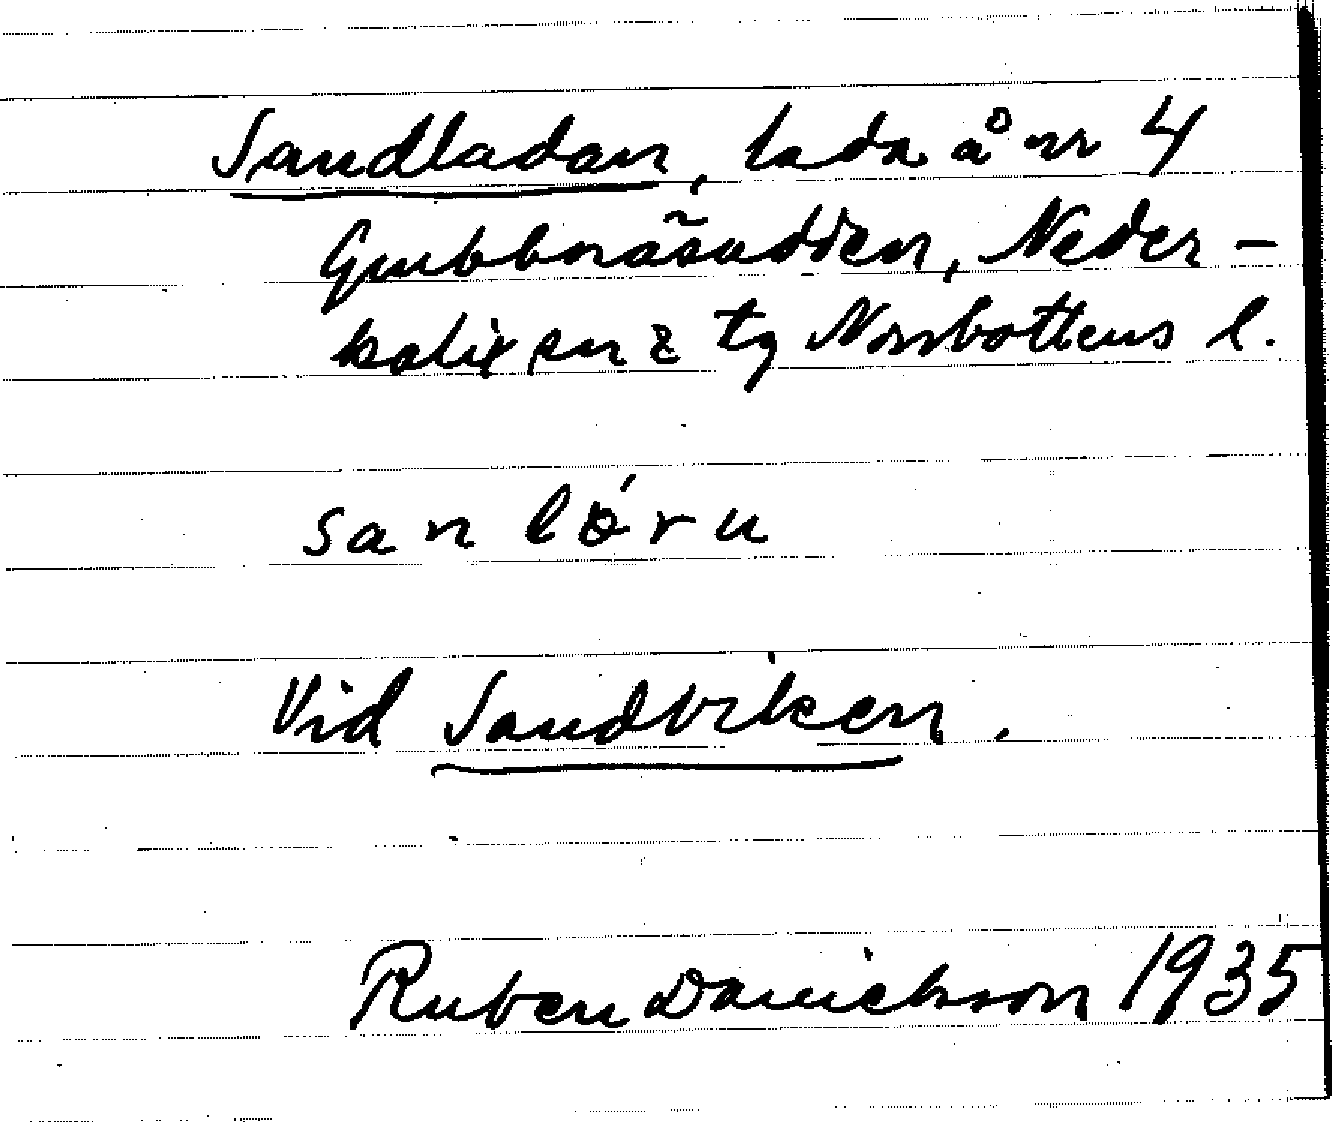 Sandladan, lada å nr 4
Gubbnäsudden, Neder-
kalix sn z tg Norrbottens l.
san lóru
Vid Sandviken.
Ruben Danielsson 1935